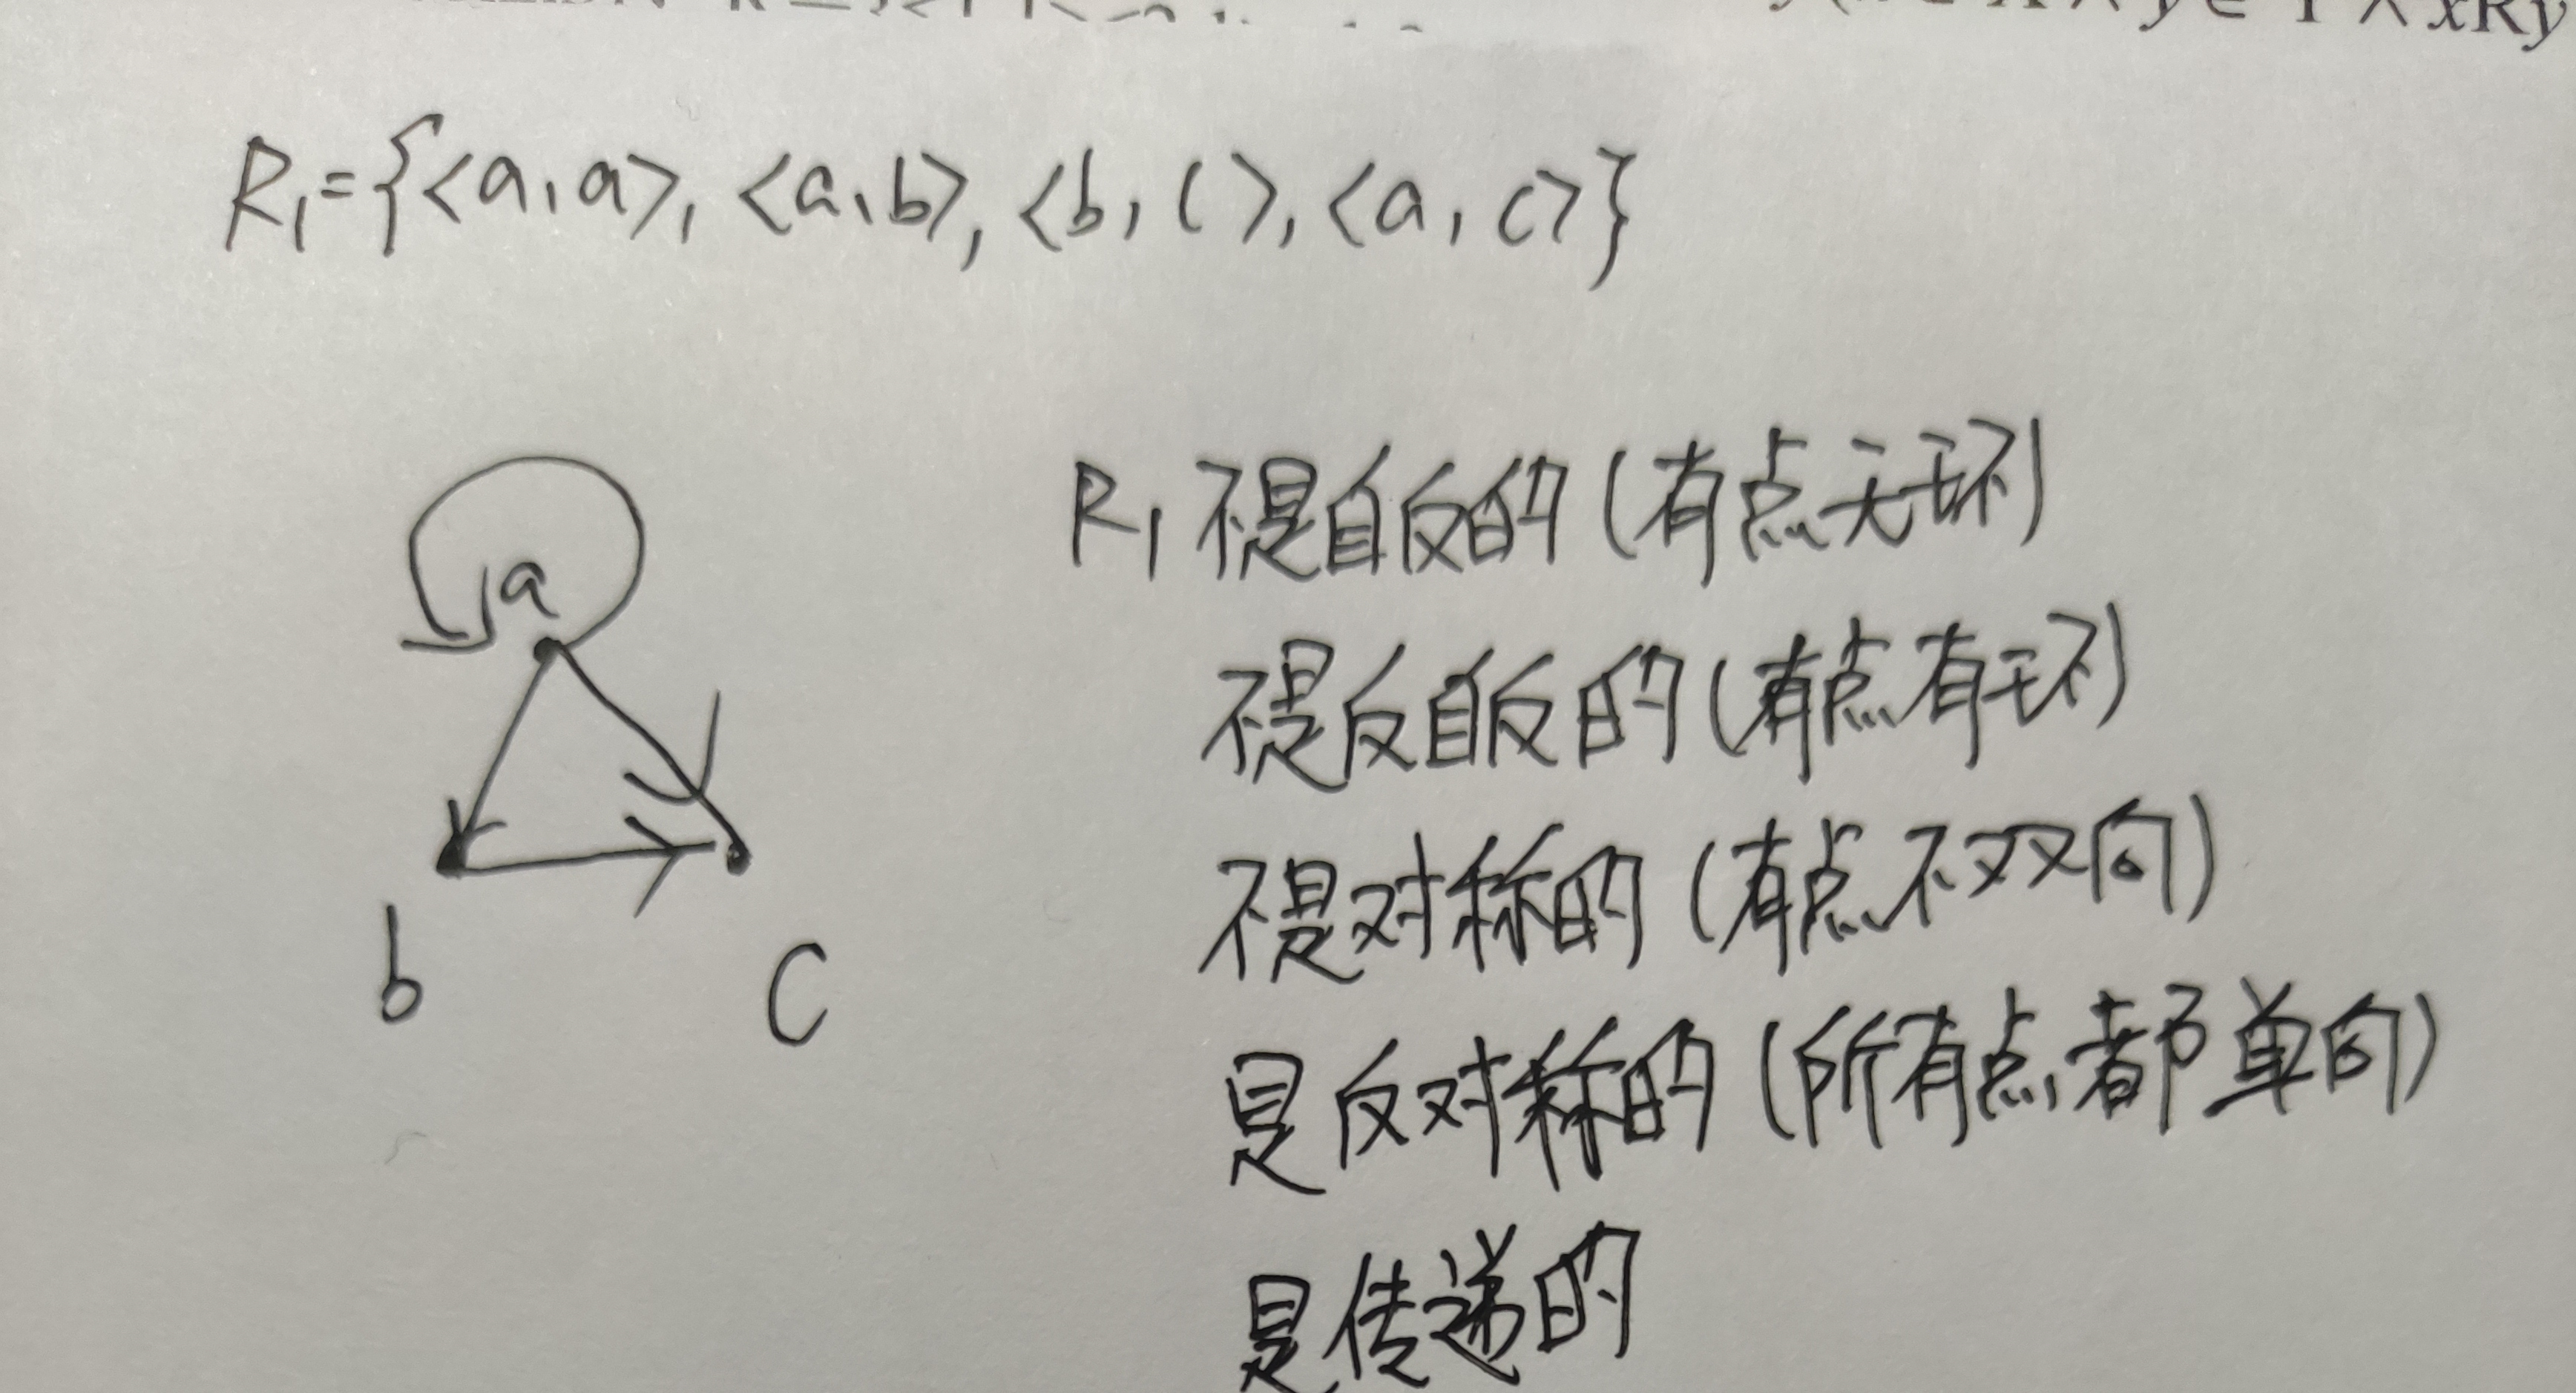 xRy
R₁={<a,a>, <a,b>, <b,c>, <a,c>}
a
b
c
R₁ 不是自反的(有点无环)
不是反自反的(有点有环)
不是对称的(有点不双向)
是反对称的(所有点都单向)
是传递的